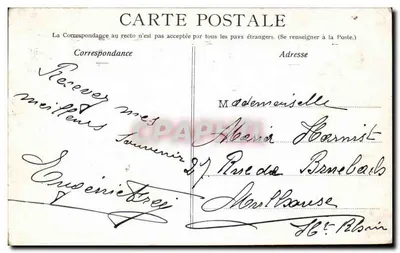 CARTE POSTALE
La Correspondance au recto n'est pas acceptée par tous les pays étrangers. (Se renseigner à la Poste.)
Correspondance
Adresse
Recevez mes
meilleurs souvenirs
Eugénie Frey
Mademoiselle
Maria
27 Rue de
Mulhouse
Ht. Rhin